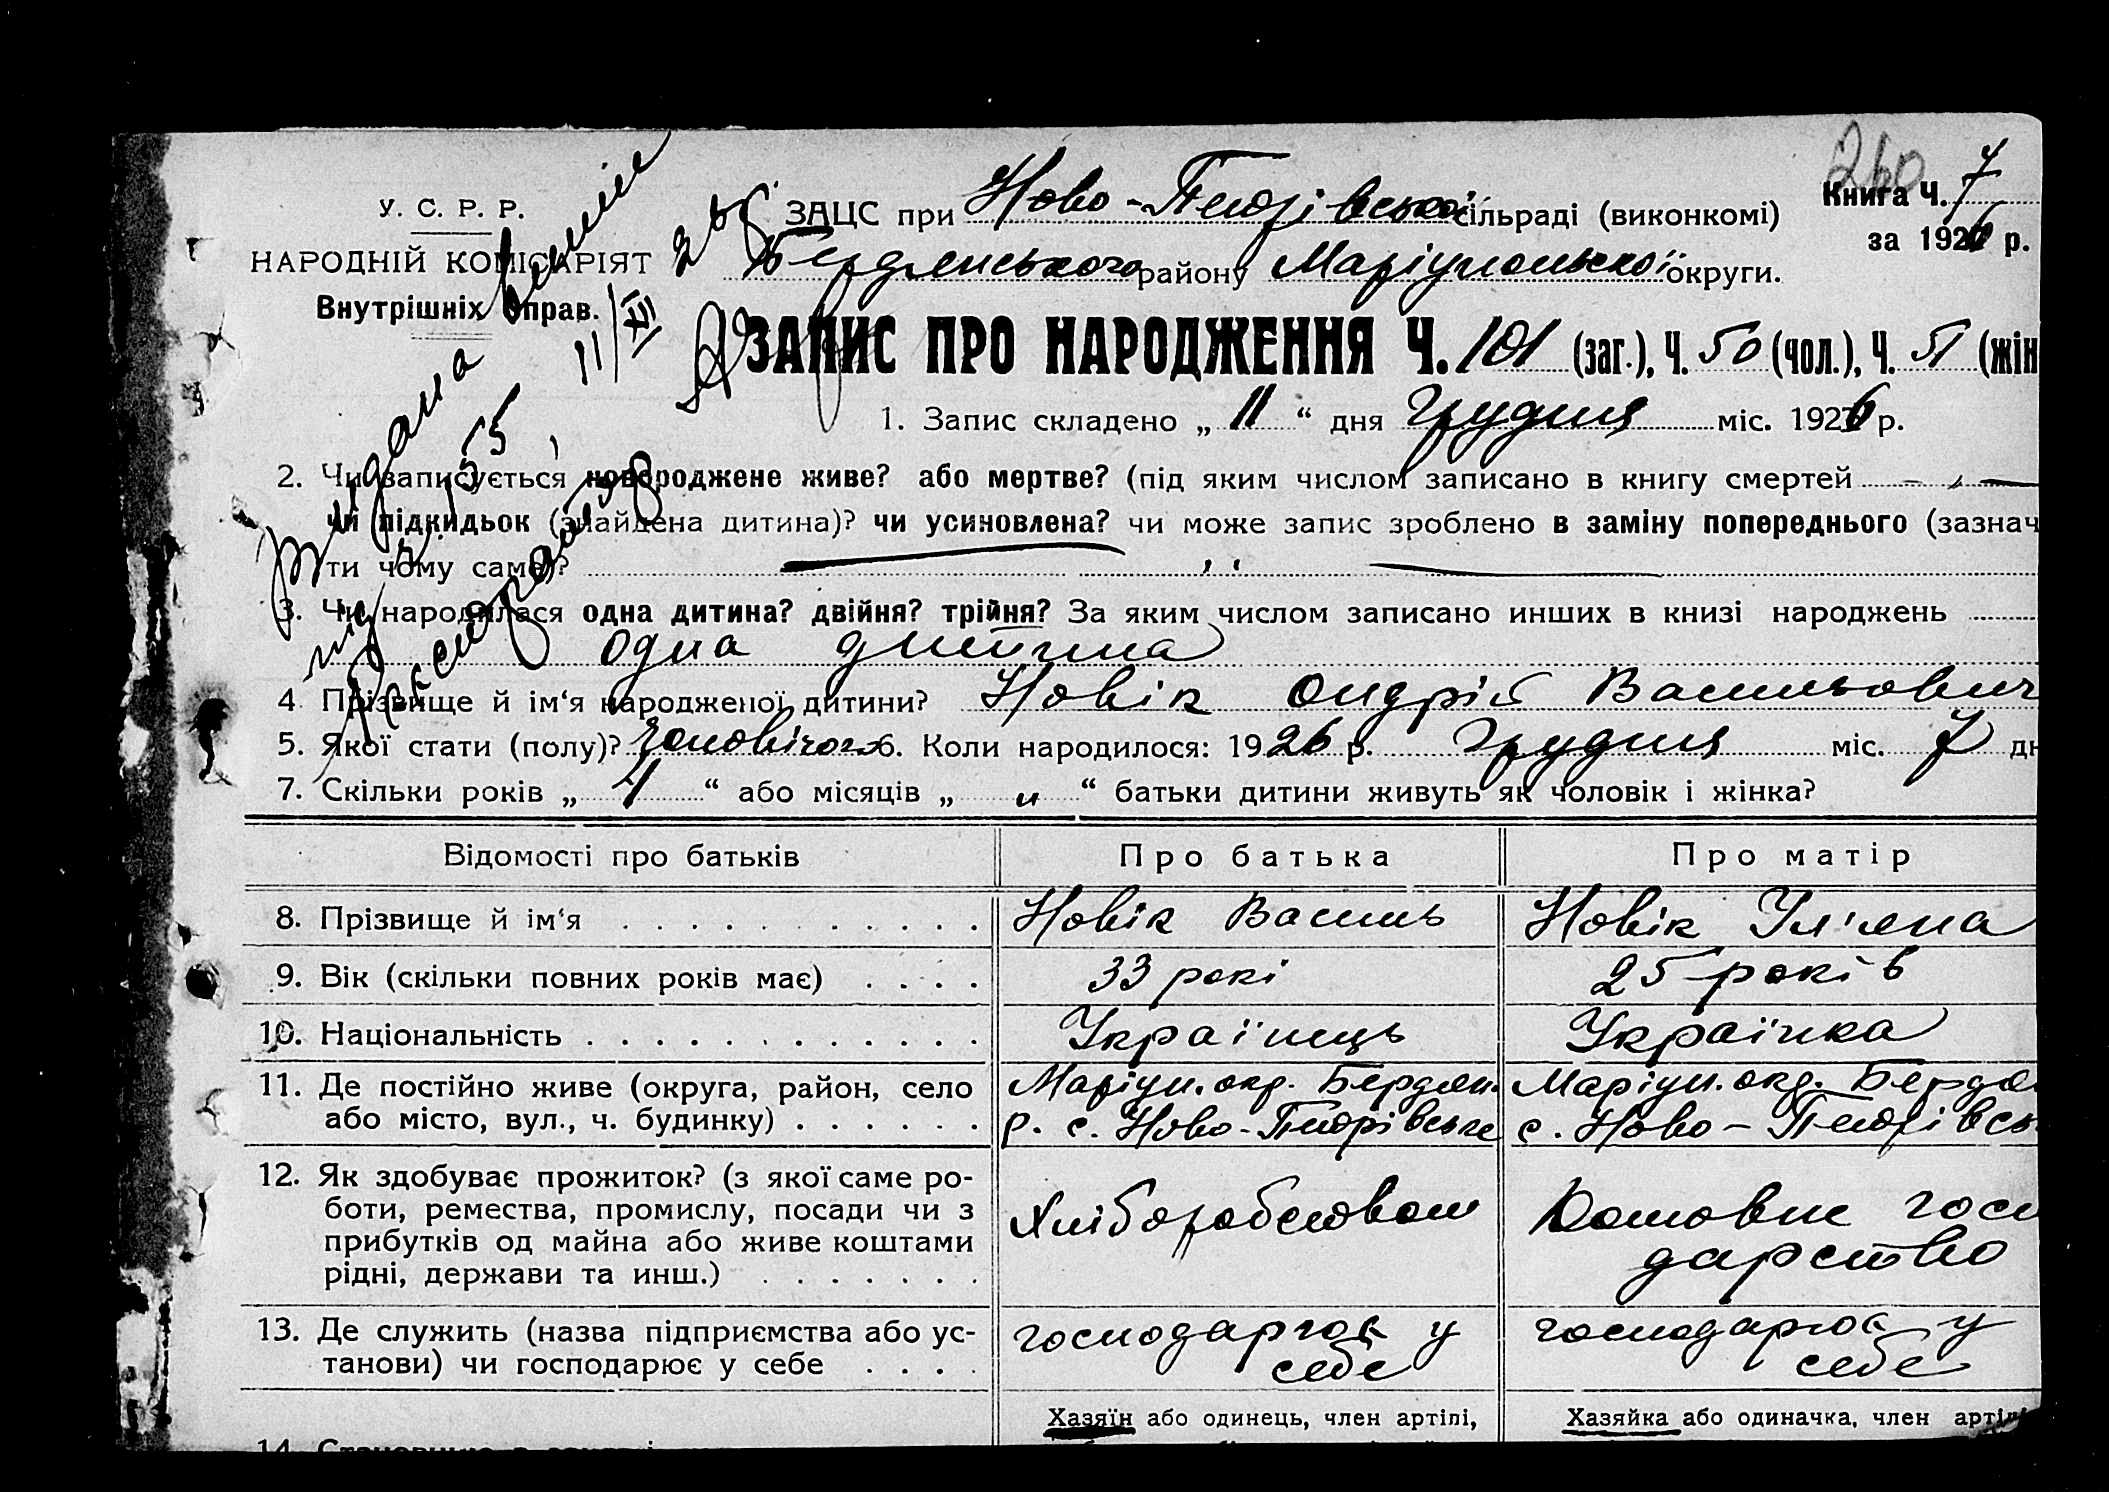 260
У. С. Р. Р.
НАРОДНІЙ КОМІСАРІЯТ
Внутрішніх Справ.
ЗАЦС при Ново-Петрівській сільраді (виконкомі)
Книга Ч. 7
за 1926 р.
Бердянського району Маріупольської округи.
11/XII
ЗАПИС ПРО НАРОДЖЕННЯ Ч. 101 (заг.), Ч. 50 (чол.), Ч. 51 (жін
1. Запис складено „ 11 “ дня Грудня міс. 1926 р.
2. Чи записується новороджене живе? або мертве? (під яким числом записано в книгу смертей
чи підкидьок (знайдена дитина)? чи усиновлена? чи може запис зроблено в заміну попереднього (зазнач
ти чому саме)?
3. Чи народилася одна дитина? двійня? трійня? За яким числом записано инших в книзі народжень
одна дитина
4 Прізвище й ім‘я народженої дитини? Новік Андрій Васильович
5. Якої стати (полу)? Чоловічого 6. Коли народилося: 1926 р. Грудня міс. 7 дн
7. Скільки років „ 4 “ або місяців „ “ батьки дитини живуть як чоловік і жінка?
Відомості про батьків Про батька Про матір
8. Прізвище й ім‘я Новік Василь Новік Ул'яна
9. Вік (скільки повних років має) 33 рокі 25 років
10. Національність Українець Українка
11. Де постійно живе (округа, район, село Маріуп. окр. Бердян. Маріуп. окр. Бердян
або місто, вул., ч. будинку) р. с. Ново-Петрівське с. Ново-Петрівсь
12. Як здобуває прожиток? (з якої саме ро-
боти, ремества, промислу, посади чи з Хліборобством Домовне госп
прибутків од майна або живе коштами дарство
рідні, держави та инш.)
13. Де служить (назва підприємства або ус- господарює у господарює у
танови) чи господарює у себе себе себе
Хазяїн або одинець, член артілі, Хазяйка або одиначка, член артілі